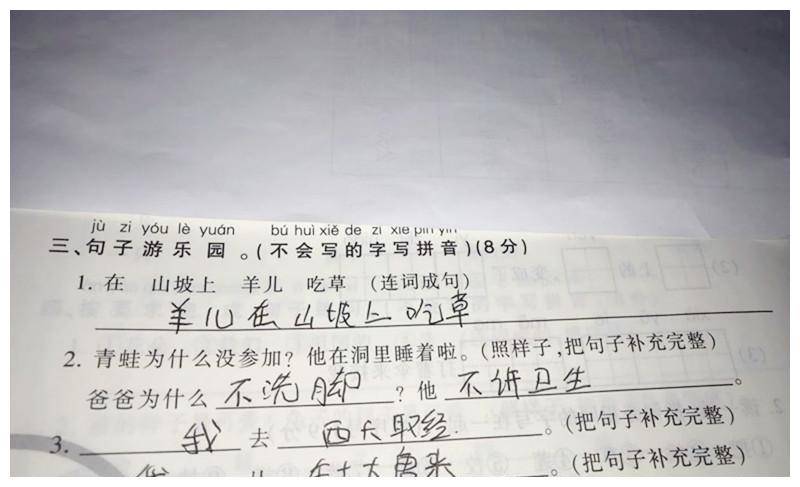 jù zi yóu lè yuán bú huì xiě de zì xiě pīn yīn
三、句子游乐园。(不会写的字写拼音)(8分)
1. 在 山坡上 羊儿 吃草 (连词成句)
羊儿在山坡上吃草
2. 青蛙为什么没参加?他在洞里睡着啦。(照样子,把句子补充完整)
爸爸为什么 不洗脚 ?他 不讲卫生 。
3. 我 去 西天取经. 。(把句子补充完整)
。(把句子补充完整)